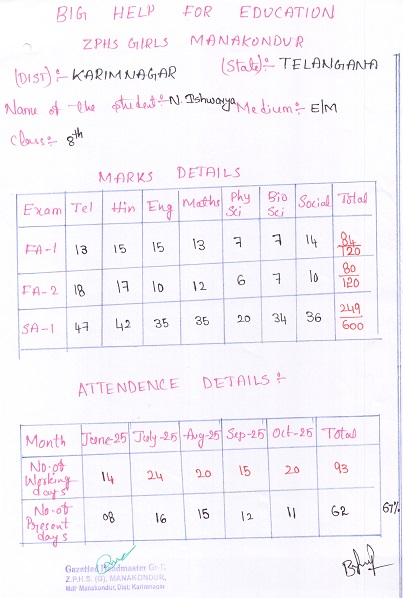 BIG HELP FOR EDUCATION
ZPHS GIRLS MANAKONDUR
(DIST):- KARIMNAGAR (State):- TELANGANA
Name of the student:- N. Ishwarya Medium:- E/M
Class:- 8th
MARKS DETAILS
Exam Tel Hin Eng Maths Phy Sci Bio Sci Social Total
FA-1 13 15 15 13 7 7 14 84/120
FA-2 18 17 10 12 6 7 10 80/120
SA-1 47 42 35 35 20 34 36 249/600
ATTENDENCE DETAILS:-
Month June-25 July-25 Aug-25 Sep-25 Oct-25 Total
No. of Working days 14 24 20 15 20 93
No. of Present days 08 16 15 12 11 62 67%
Gazetted Headmaster Gr-II
Z.P.H.S. (G), MANAKONDUR,
Mdl: Manakondur, Dist: Karimnagar